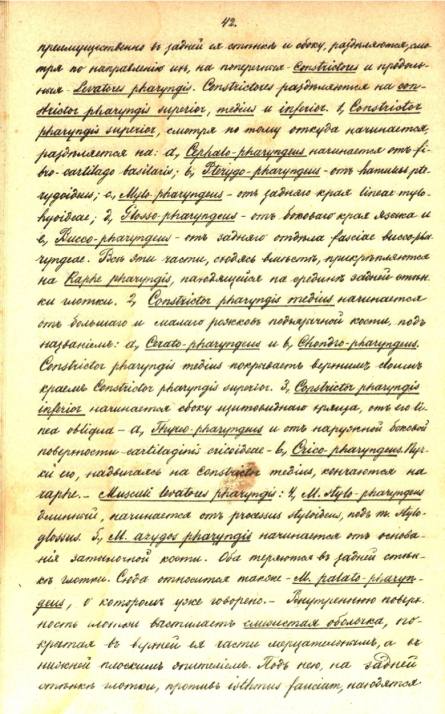 42.
преимущественно въ задней ея стѣнкѣ и сбоку, раздѣляются, смо-
тря по направленію ихъ, на поперечныя - Constrictores и продоль-
ныя - Levatores pharyngis. Constrictores раздѣляются на con-
strictor pharyngis superior, medius и inferior. 1, Constrictor
pharyngis superior, смотря по тому откуда начинается,
раздѣляется на: a, Cephalo-pharyngeus начинается отъ fi-
bro-cartilago basilaris; b, Pterygo-pharyngeus - отъ hamulus pte-
rygoideus; c, Mylo-pharyngeus - отъ задняго края lineae mylo-
hyoideae; d, Glosso-pharyngeus - отъ боковаго края языка и
e, Bucco-pharyngeus - отъ задняго отдѣла fasciae bucco-pha-
ryngeae. Всѣ эти части, сходясь вмѣстѣ, прикрѣпляются
на Raphe pharyngis, находящейся по срединѣ задней стѣн-
ки глотки. 2, Constrictor pharyngis medius начинается
отъ большаго и малаго рожковъ подъязычной кости, подъ
названіемъ: a, Cerato-pharyngeus и b, Chondro-pharyngeus.
Constrictor pharyngis medius покрываетъ верхнимъ своимъ
краемъ Constrictor pharyngis superior. 3, Constrictor pharyngis
inferior начинается сбоку щитовиднаго хряща, отъ его li-
nea obliqua - a, Thyreo-pharyngeus и отъ наружной боковой
поверхности cartilaginis cricoideae - b, Crico-pharyngeus. Пуч-
ки его, надвигаясь на Constrictor medius, кончаются на
raphe. - Musculi levatores pharyngis: 4, M. Stylo-pharyngeus
длинный, начинается отъ processus styloideus, подъ m. Stylo-
glossus. 5, M. azygos pharyngis начинается отъ основа-
нія затылочной кости. Оба теряются въ задней стѣн-
кѣ глотки. Сюда относится также - M. palato-pharyn-
geus, о которомъ уже говорено. - Внутреннюю поверх-
ность глотки выстилаетъ слизистая оболочка, по-
крытая въ верхней ея части мерцательнымъ, а въ
нижней плоскимъ эпителіемъ. Подъ нею, на задней
стѣнкѣ глотки, противъ isthmus faucium, находятся